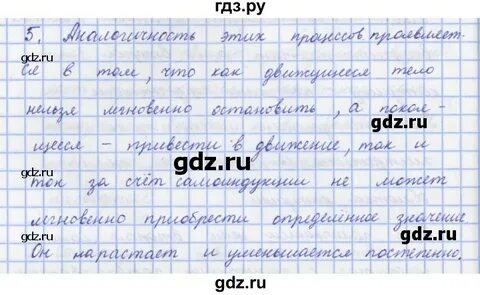 гдз.ру
5. Аналогичность этих процессов проявляет-
ся в том, что как движущееся тело
нельзя мгновенно остановить, а покоя-
щееся – привести в движение, так и
ток за счёт самоиндукции не может
мгновенно приобрести определённое значение.
Он нарастает и уменьшается постепенно.
gdz.ru
gdz.ru
gdz.ru
gdz.ru
gdz.ru